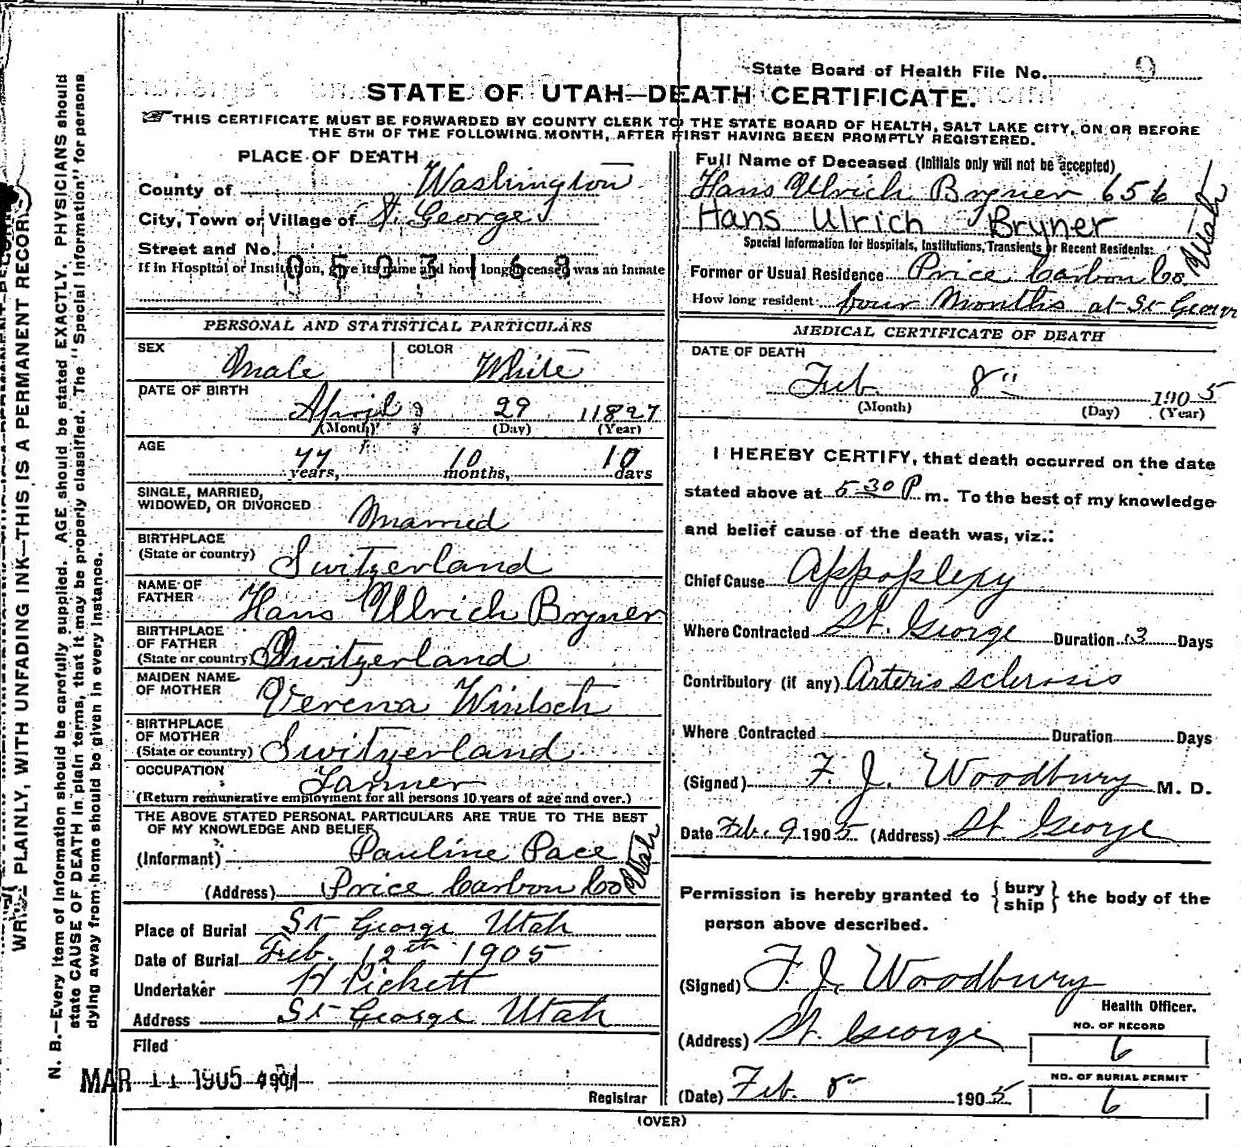 State Board of Health File No. 9
STATE OF UTAH—DEATH CERTIFICATE.
THIS CERTIFICATE MUST BE FORWARDED BY COUNTY CLERK TO THE STATE BOARD OF HEALTH, SALT LAKE CITY, ON OR BEFORE
THE 5TH OF THE FOLLOWING MONTH, AFTER FIRST HAVING BEEN PROMPTLY REGISTERED.
PLACE OF DEATH
County of Washington
City, Town or Village of St. George
Street and No.
If in Hospital or Institution, give its name and how long deceased was an Inmate
0503168
PERSONAL AND STATISTICAL PARTICULARS
SEX Male COLOR White
DATE OF BIRTH April 29 1827
(Month) (Day) (Year)
AGE 77 years, 10 months, 10 days
SINGLE, MARRIED,
WIDOWED, OR DIVORCED Married
BIRTHPLACE
(State or country) Switzerland
NAME OF
FATHER Hans Ulrich Bryner
BIRTHPLACE
OF FATHER
(State or country) Switzerland
MAIDEN NAME
OF MOTHER Verena Wintsch
BIRTHPLACE
OF MOTHER
(State or country) Switzerland
OCCUPATION
(Return remunerative employment for all persons 10 years of age and over.)
THE ABOVE STATED PERSONAL PARTICULARS ARE TRUE TO THE BEST
OF MY KNOWLEDGE AND BELIEF
(Informant) Pauline Pace
(Address) Price Carbon Co Utah
Place of Burial St George Utah
Date of Burial Feb. 12th 1905
Undertaker H Pickett
Address St George Utah
Filed
MAR 11 1905 190
Registrar
Full Name of Deceased (Initials only will not be accepted)
Hans Ulrich Bryner 656
Hans Ulrich Bryner
Special Information for Hospitals, Institutions, Transients or Recent Residents:
Former or Usual Residence Price Carbon Co Utah
How long resident four Months at St George
MEDICAL CERTIFICATE OF DEATH
DATE OF DEATH
Feb. 8" 1905
(Month) (Day) (Year)
I HEREBY CERTIFY, that death occurred on the date
stated above at 5-30 P m. To the best of my knowledge
and belief cause of the death was, viz.:
Chief Cause Appoplexy
Where Contracted St. George Duration 3 Days
Contributory (if any) Arterio sclerosis
Where Contracted Duration Days
(Signed) F. J. Woodbury M. D.
Date Feb. 9 1905 (Address) St George
Permission is hereby granted to {bury
ship} the body of the
person above described.
(Signed) F. J. Woodbury
Health Officer.
(Address) St. George
NO. OF RECORD
6
NO. OF BURIAL PERMIT
6
(Date) Feb. 8" 1905
(OVER)
WRITE PLAINLY, WITH UNFADING INK—THIS IS A PERMANENT RECORD.
N. B.—Every item of information should be carefully supplied. AGE should be stated EXACTLY. PHYSICIANS should
state CAUSE OF DEATH in plain terms, that it may be properly classified. The "Special Information" for persons
dying away from home should be given in every instance.